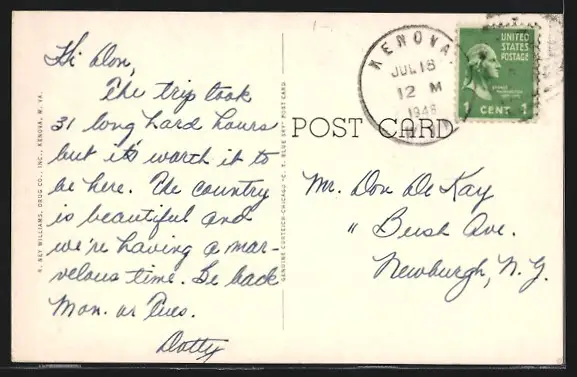 Hi Don,
The trip took
31 long, hard hours
but it's worth it to
be here. The country
is beautiful and
we're having a mar-
velous time. Be back
Mon. or Tues.
Dotty
R. NEY WILLIAMS, DRUG CO., INC., KENOVA, W. VA.
GENUINE CURTEICH-CHICAGO "C. T. BLUE SKY" POST CARD
POST CARD
KENOVA
JUL 18
12 M
1946
UNITED
STATES
POSTAGE
1 CENT 1
Mr. Don De Kay
" Bush Ave.
Newburgh, N.Y.